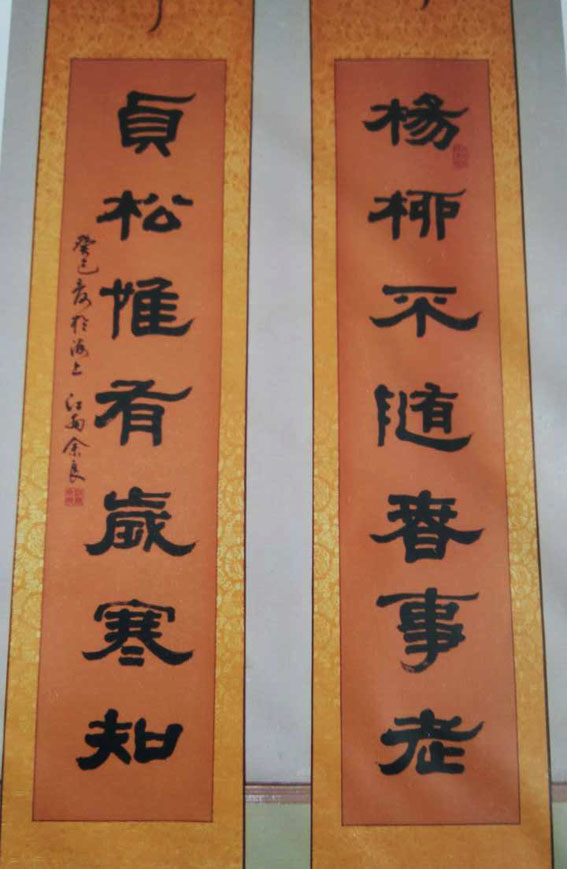 楊柳不随春事老
貞松惟有歲寒知
癸巳夏於海上 江南余良